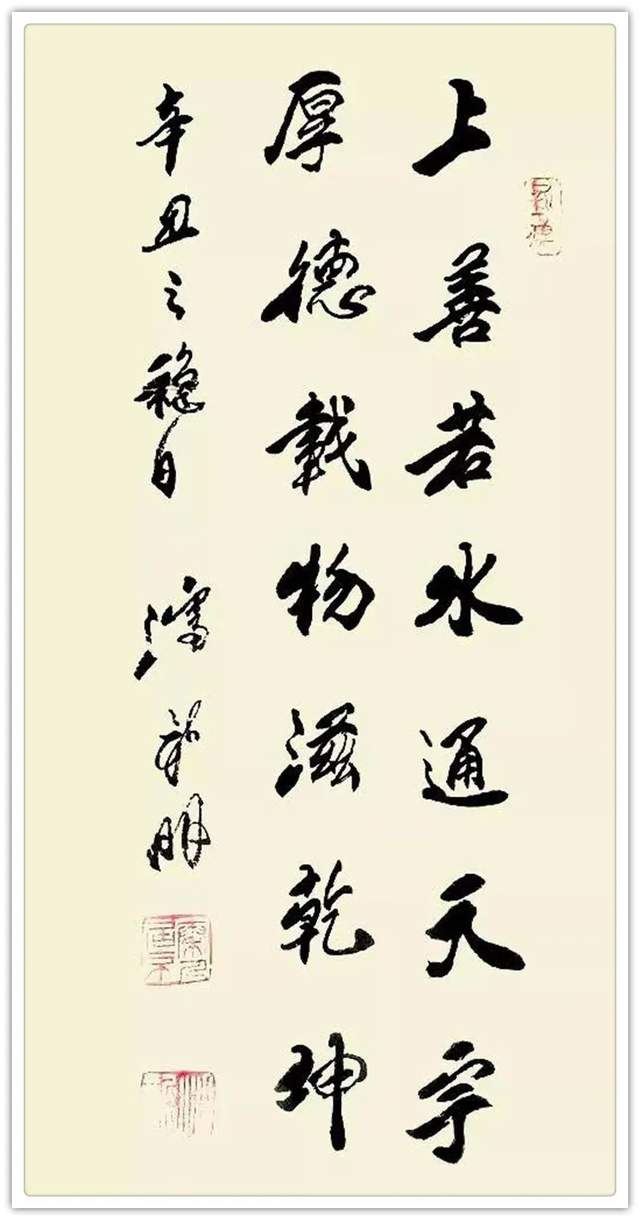 上善若水通天宇
厚德载物滋乾坤
辛丑之穐日
明